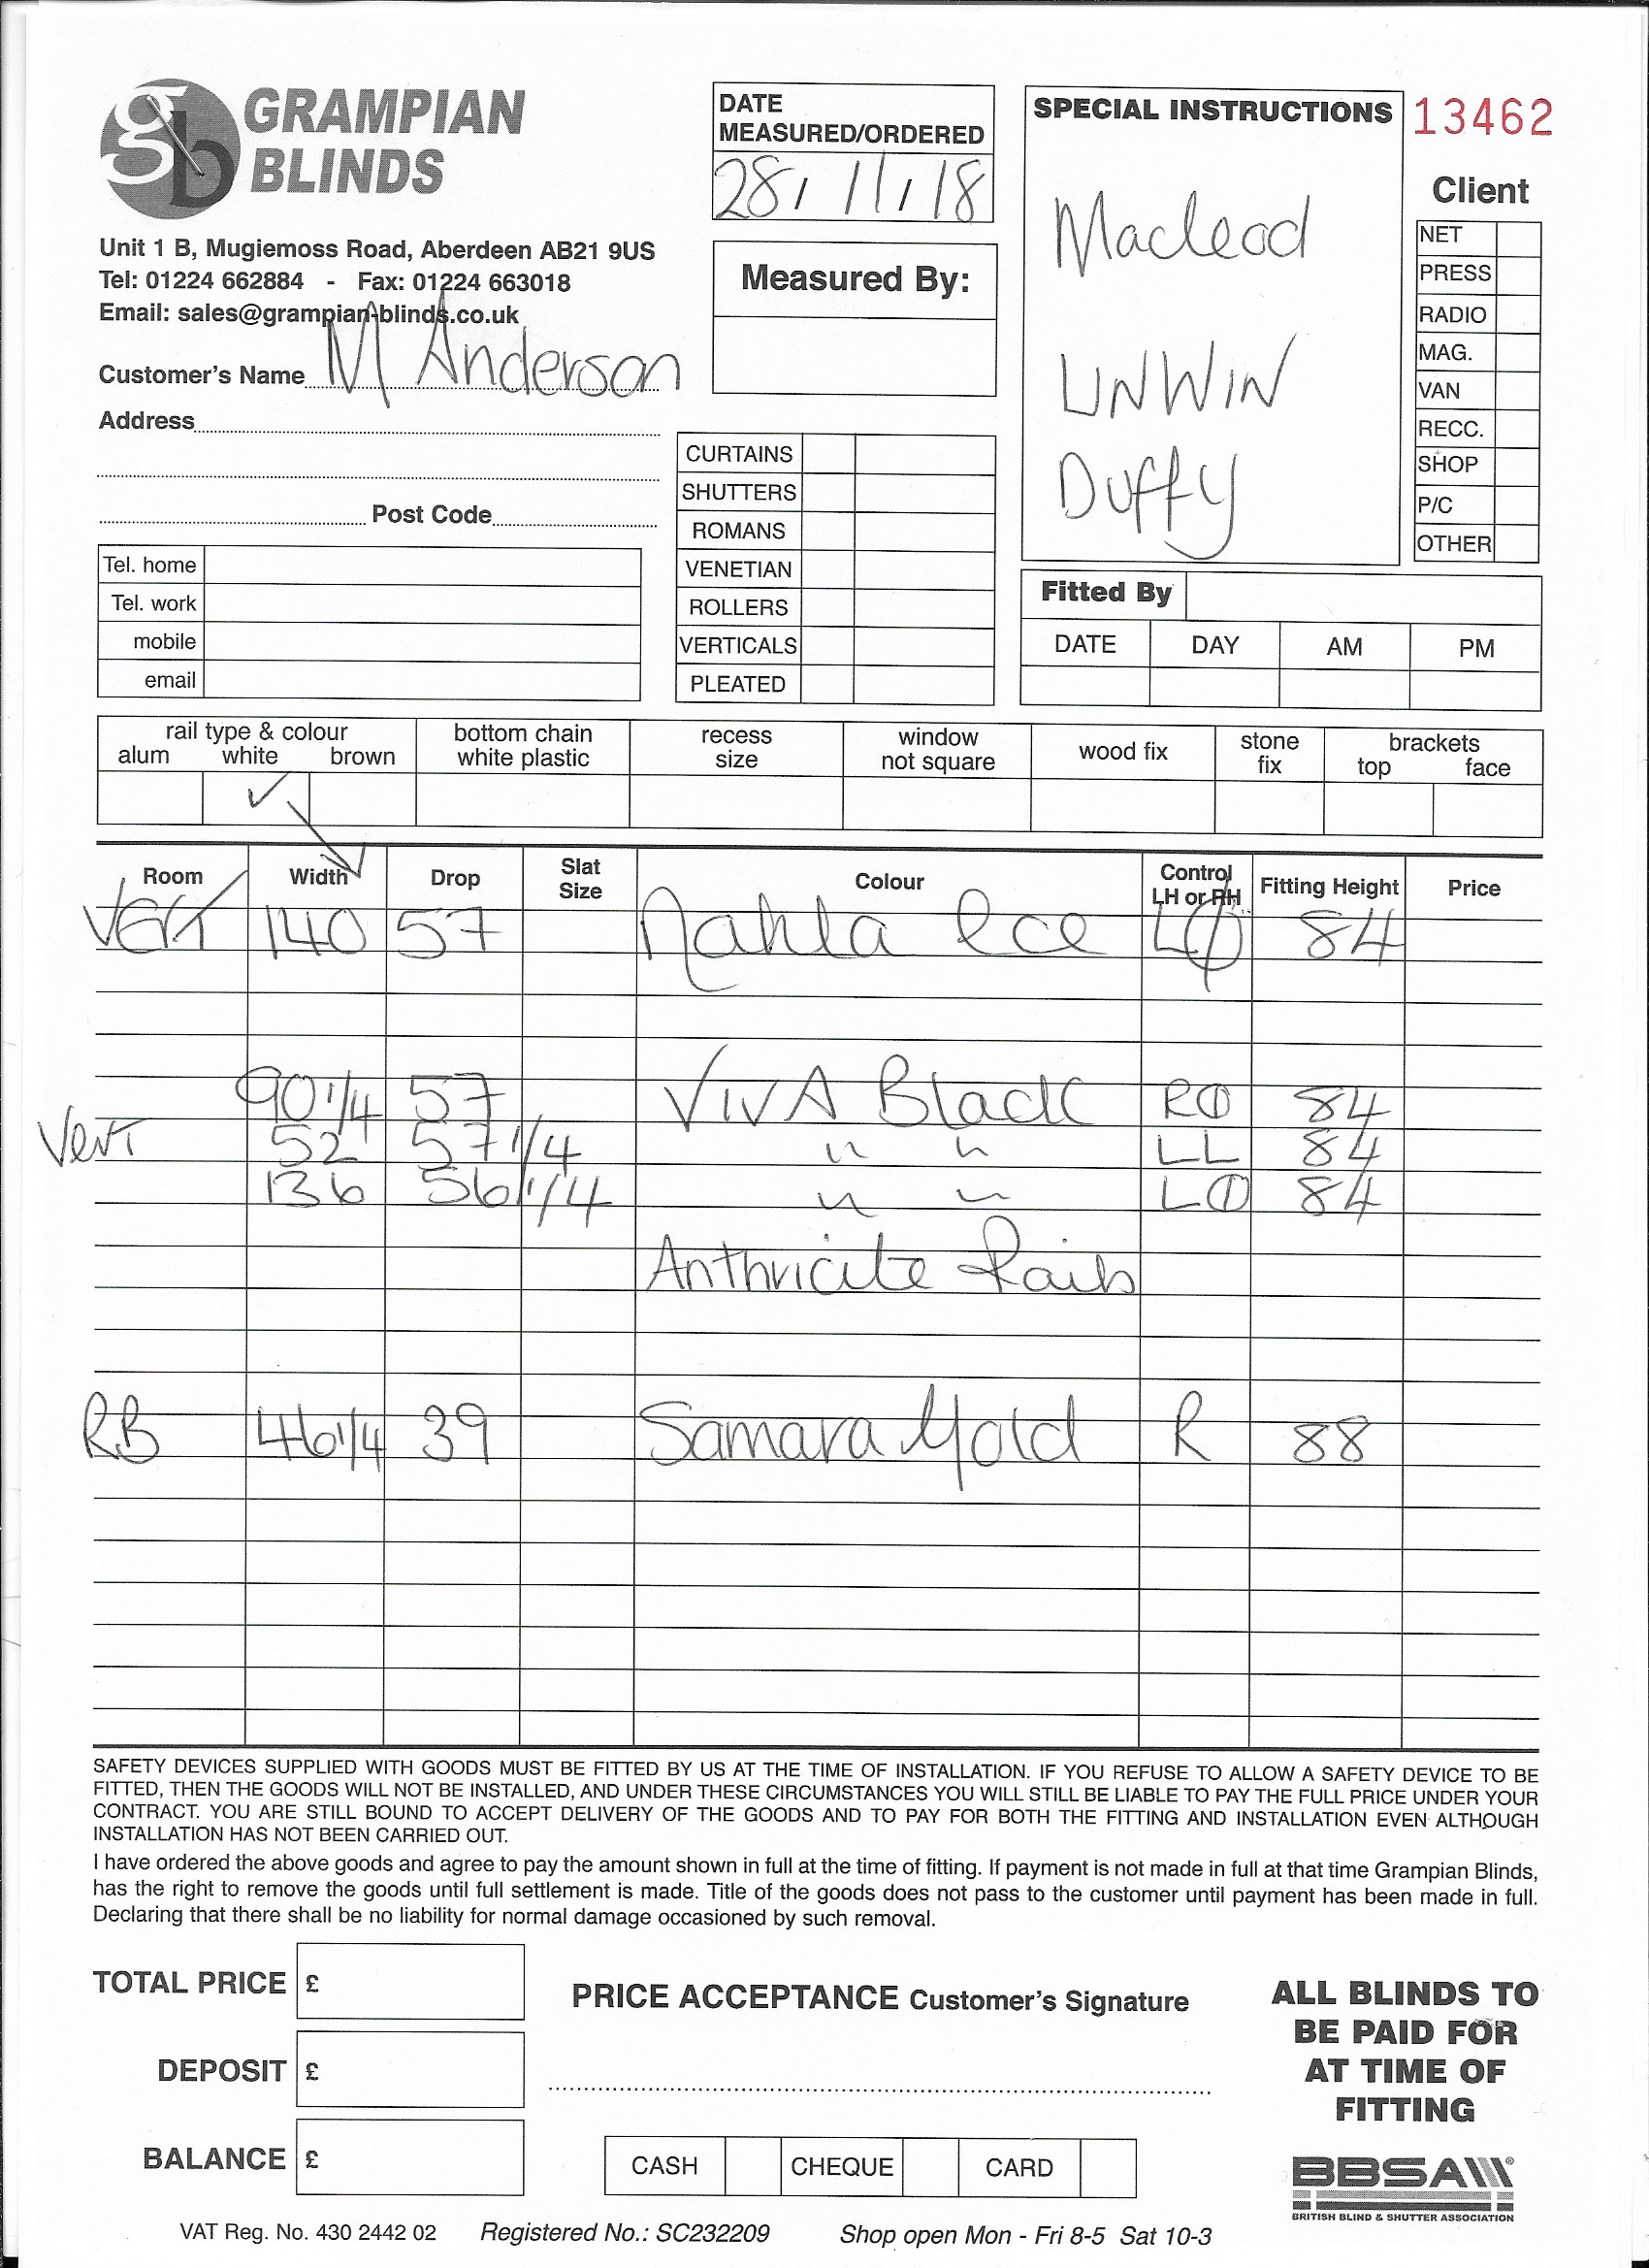 gb GRAMPIAN BLINDS
Unit 1 B, Mugiemoss Road, Aberdeen AB21 9US
Tel: 01224 662884 - Fax: 01224 663018
Email: sales@grampian-blinds.co.uk
Customer's Name M Anderson
Address
Post Code
Tel. home
Tel. work
mobile
email
DATE
MEASURED/ORDERED
28/11/18
Measured By:
CURTAINS
SHUTTERS
ROMANS
VENETIAN
ROLLERS
VERTICALS
PLEATED
SPECIAL INSTRUCTIONS
Macleod
UNWIN
Duffy
13462
Client
NET
PRESS
RADIO
MAG.
VAN
RECC.
SHOP
P/C
OTHER
Fitted By
DATE DAY AM PM
rail type & colour
alum white brown
bottom chain
white plastic
recess
size
window
not square
wood fix
stone
fix
brackets
top face
✓
Room Width Drop Slat Size Colour Control LH or RH Fitting Height Price
VERT 140 57 Nahla Ice LO 84
90 1/4 57 VIVA Black RO 84
Vert 52 57 1/4 " " LL 84
136 56 1/4 " " LO 84
Anthricite Rails
RB 46 1/4 39 Samara Gold R 88
SAFETY DEVICES SUPPLIED WITH GOODS MUST BE FITTED BY US AT THE TIME OF INSTALLATION. IF YOU REFUSE TO ALLOW A SAFETY DEVICE TO BE
FITTED, THEN THE GOODS WILL NOT BE INSTALLED, AND UNDER THESE CIRCUMSTANCES YOU WILL STILL BE LIABLE TO PAY THE FULL PRICE UNDER YOUR
CONTRACT. YOU ARE STILL BOUND TO ACCEPT DELIVERY OF THE GOODS AND TO PAY FOR BOTH THE FITTING AND INSTALLATION EVEN ALTHOUGH
INSTALLATION HAS NOT BEEN CARRIED OUT.
I have ordered the above goods and agree to pay the amount shown in full at the time of fitting. If payment is not made in full at that time Grampian Blinds,
has the right to remove the goods until full settlement is made. Title of the goods does not pass to the customer until payment has been made in full.
Declaring that there shall be no liability for normal damage occasioned by such removal.
TOTAL PRICE £
DEPOSIT £
BALANCE £
PRICE ACCEPTANCE Customer's Signature
CASH CHEQUE CARD
ALL BLINDS TO
BE PAID FOR
AT TIME OF
FITTING
BBSA
BRITISH BLIND & SHUTTER ASSOCIATION
VAT Reg. No. 430 2442 02 Registered No.: SC232209 Shop open Mon - Fri 8-5 Sat 10-3